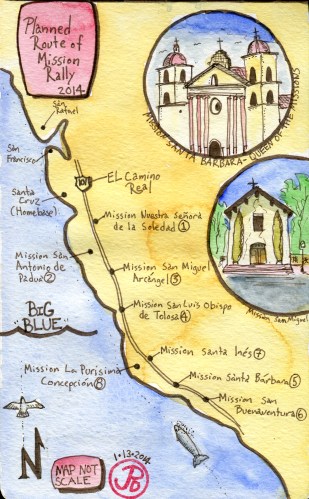 Planned
Route of
Mission
Rally
2014
MISSION SANTA BÁRBARA - QUEEN OF THE MISSIONS
San
Rafael
San
Francisco
101
EL Camino
Real
Santa
Cruz
(Homebase)
Mission Nuestra Señora
de la Soledad ①
Mission San
Antonio de
Padua ②
Mission San Miguel
Arcángel ③
Mission San Luis Obispo
de Tolosa ④
Mission San Miguel
BIG
BLUE
Mission Santa Inés ⑦
Mission La Purísima
Concepción ⑧
Mission Santa Bárbara ⑤
Mission San
Buenaventura ⑥
N
MAP NOT
SCALE
1·13·2014